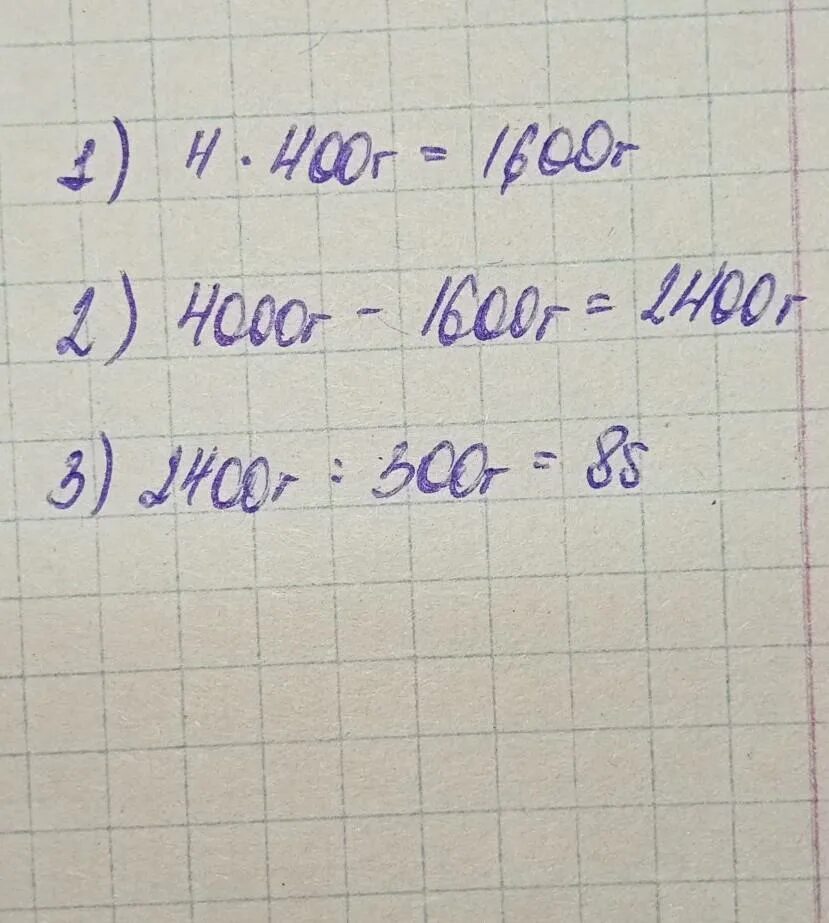 1) 4 · 400г = 1600г
2) 4000г - 1600г = 2400г
3) 2400г : 300г = 8б